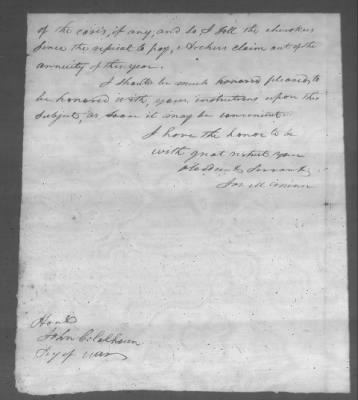 of the case, if any, and so I tell the cherokees
Since the refusal to pay, Archers claim out of the
annuity of this year.
I should be much honored pleased, to
be honored with, your instructions upon this
Subject, as soon it may be convenient.
I have the honor to be
with great respect your
Obedient Servant
Jos. McMinn
Honbl
John C. Calhoun
Secy of War